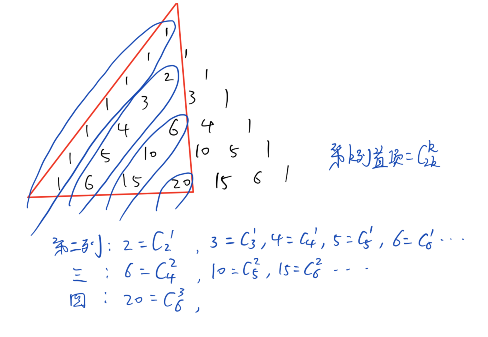 1
1 1
1 2 1
1 3 3 1
1 4 6 4 1
1 5 10 10 5 1
1 6 15 20 15 6 1
第k列首项=C_{2k}^{k}
第二列: 2=C_2^1, 3=C_3^1, 4=C_4^1, 5=C_5^1, 6=C_6^1 ···
三: 6=C_4^2, 10=C_5^2, 15=C_6^2 ···
四: 20=C_6^3,